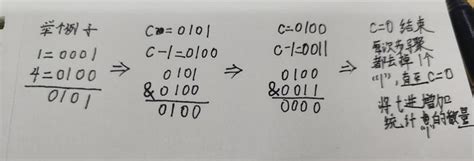 举个例子
1=0001
4=0100
0101
⇒
C=0101
C-1=0100
0101
&0100
0100
⇒
C=0100
C-1=0011
0100
&0011
0000
⇒
C=0 结束
每次步骤
都去掉1个
"1",直至C=0
将t进增加
统计的数量